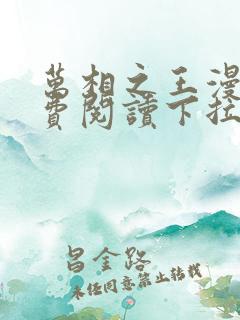 萬相之王漫
費閱讀下拉
昌金路
未经同意禁止转载